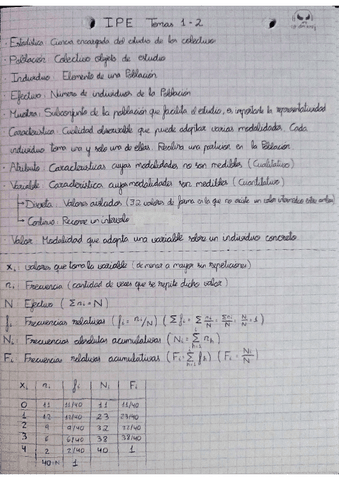 IPE Temas 1-2
· Estadística: Ciencia encargada del estudio de los colectivos
· Población: Colectivo objeto de estudio
· Individuo: Elemento de una Población
· Efectivo: Numero de individuos de la Población
· Muestra: Subconjunto de la población que facilita el estudio, es importante la representatividad
· Característica: Cualidad observable que puede adoptar varias modalidades. Cada
individuo toma una y solo una de ellas. Realiza una particion en la Población
· Atributo: Características cuyas modalidades no son medibles (Cualitativo)
· Variable: Característica cuyas modalidades son medibles (Cuantitativo)
→ Discreta: Valores aislados (32 valores de forma en la que no existe un valor intermedio entre ambos)
→ Continuo: Recorre un intervalo
Valor: Modalidad que adopta una variable sobre un individuo concreto.
xi valores que toma la variable (de menor a mayor sin repeticiones)
ni Frecuencia (cantidad de veces que se repite dicho valor)
N Efectivo (Σni = N)
fi Frecuencias relativas (fi = ni/N) (Σfi = Σ ni/N = Σni/N = N/N = 1)
Ni Frecuencias absolutas acumulativas (Ni = Σ nk)
Fi Frecuencias relativas acumulativas (Fi = Σ fk) (Fi = Ni/N)
xi ni fi Ni Fi
0 11 11/40 11 11/40
1 12 12/40 23 23/40
2 9 9/40 32 32/40
3 6 6/40 38 38/40
4 2 2/40 40 1
40=N 1